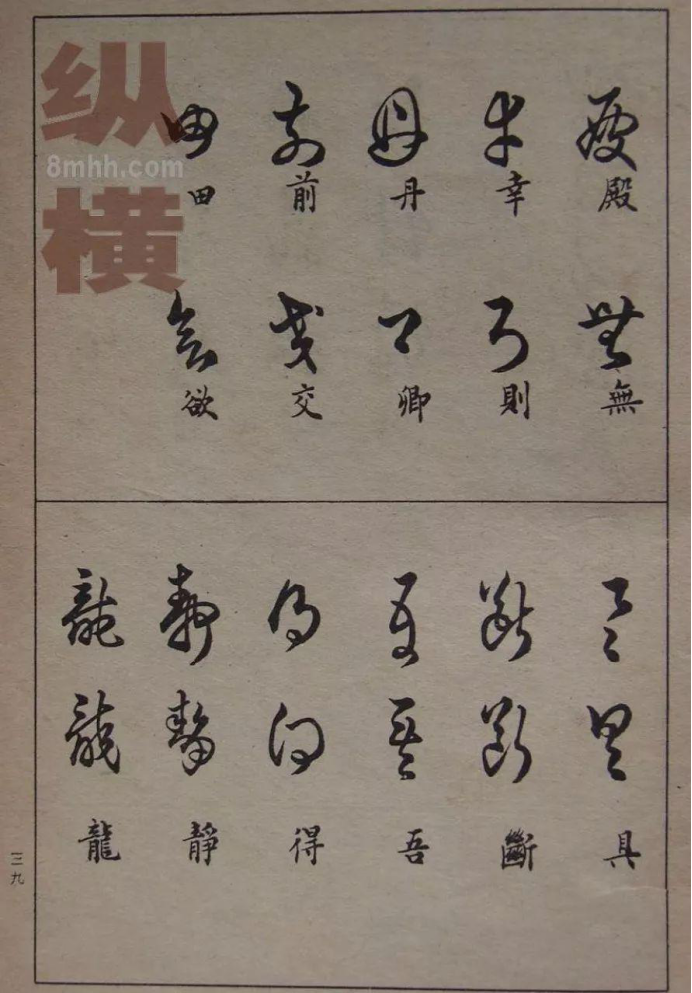 殿 無
幸 則
丹 卿
前 交
田 欲
具
斷
吾
得
靜
龍
三九
纵横
8mhh.com